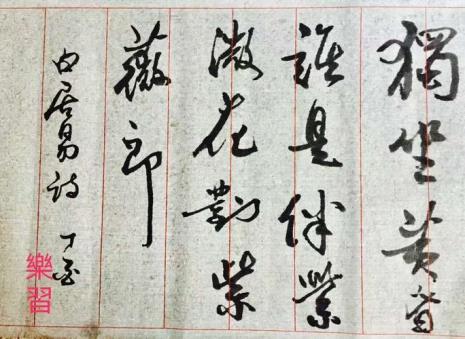 獨坐黃昏
誰是伴紫
微花對紫
薇郎
白居易詩 丁
樂習